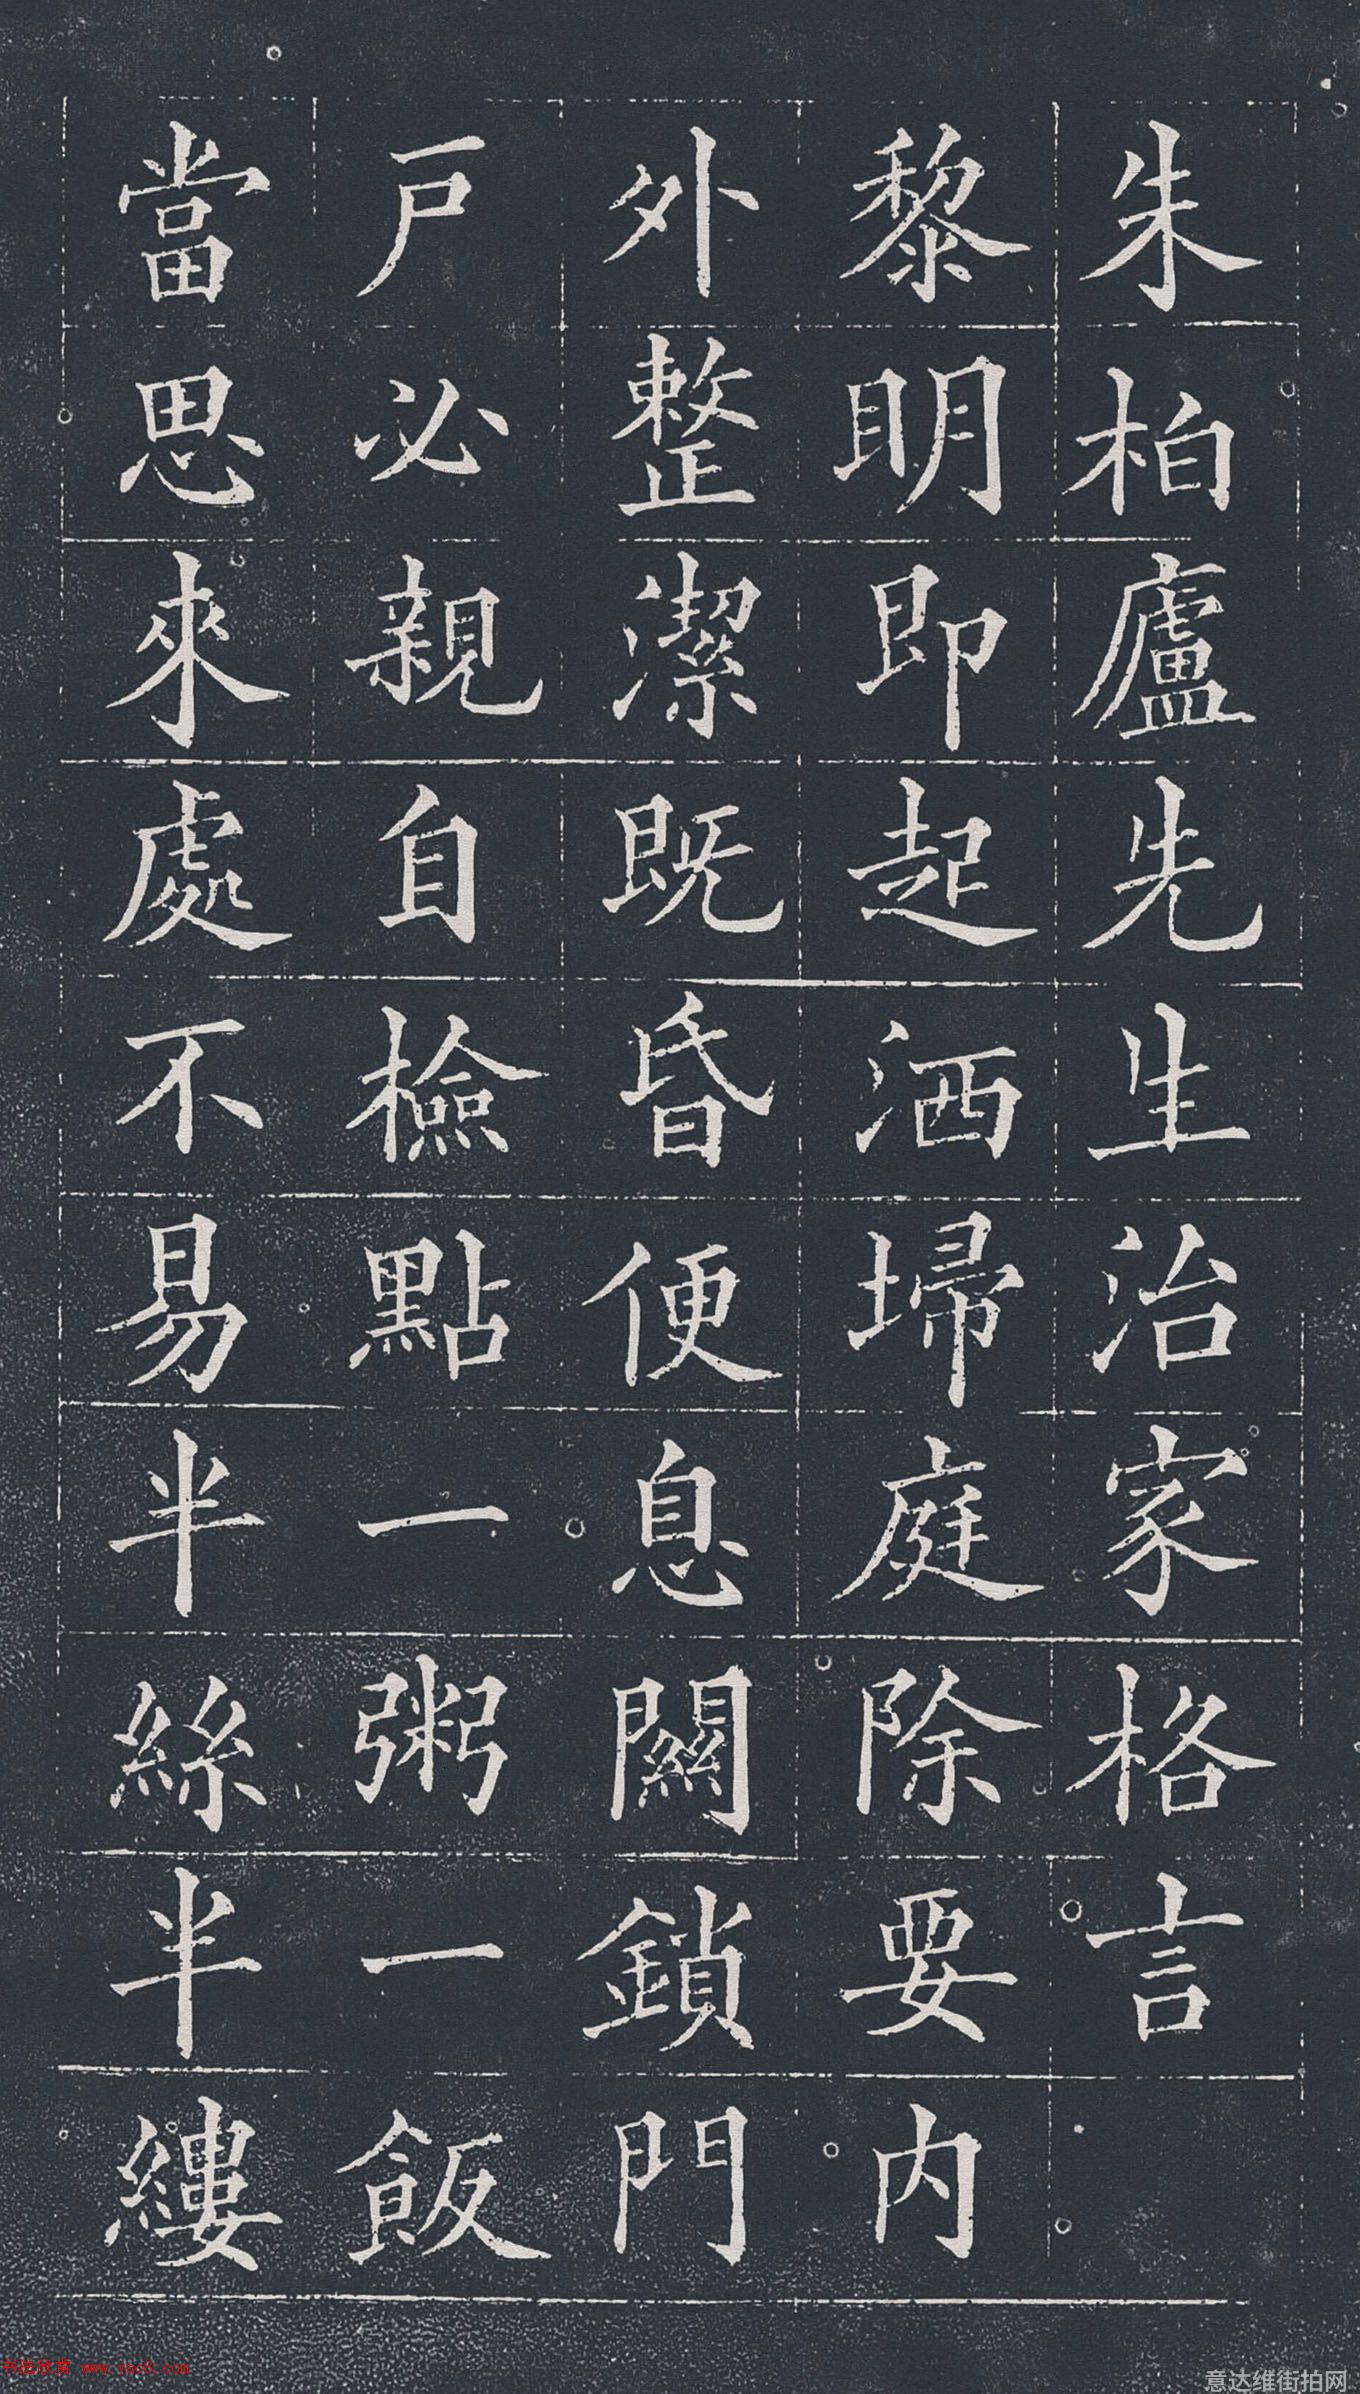 朱柏廬先生治家格言
黎明即起洒埽庭除要内
外整潔既昏便息關鎖門
戶必親自檢點一粥一飯
當思來處不易半絲半縷
www.yac8.com
意达维街拍网